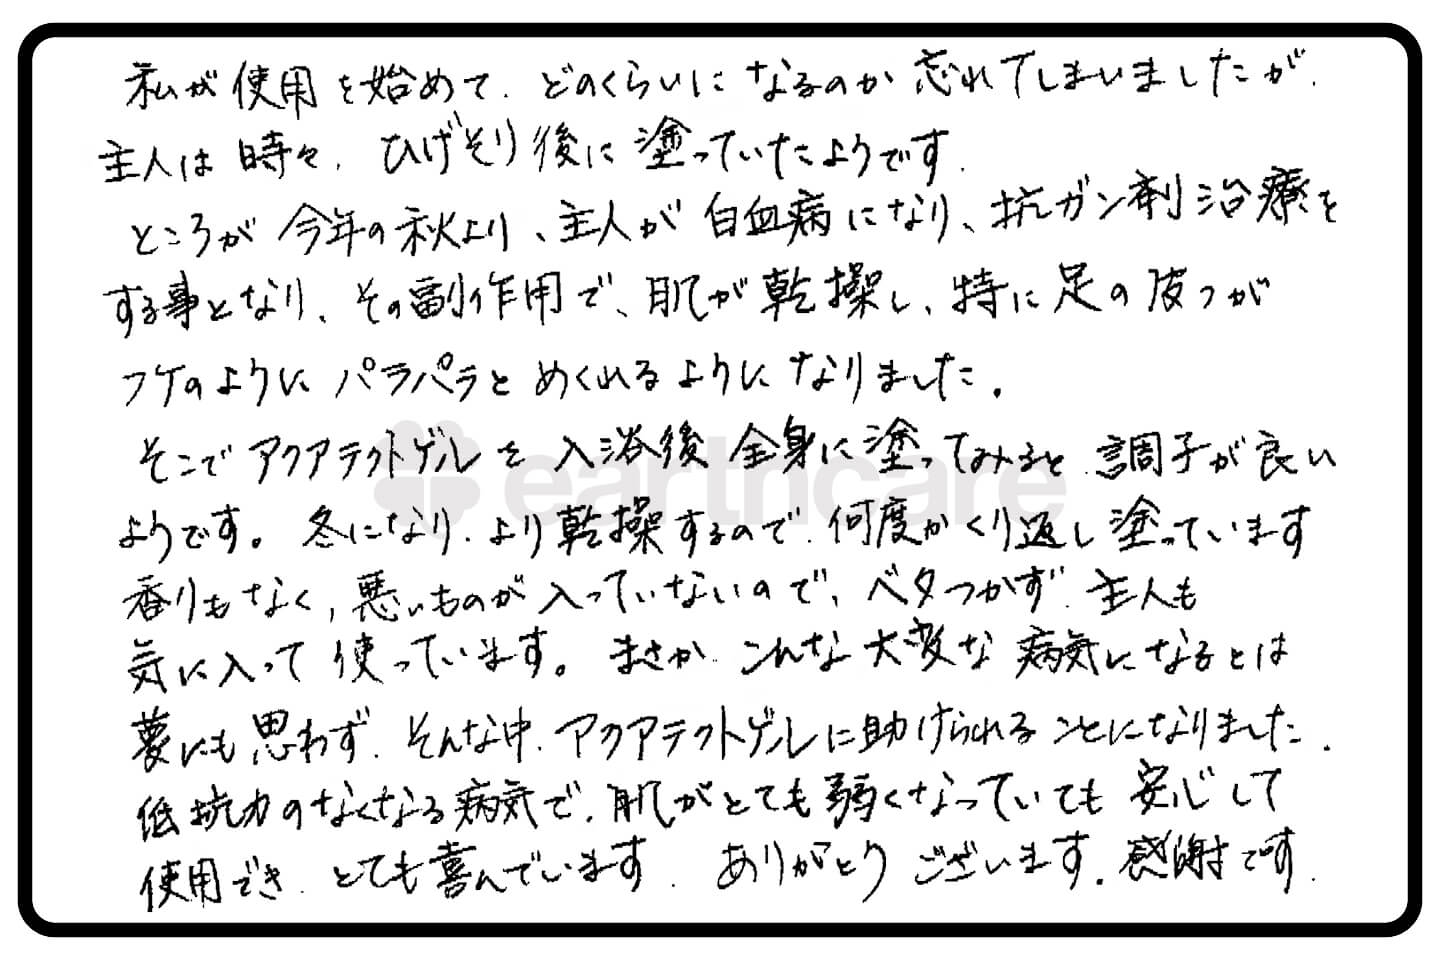 私が使用を始めて、どのくらいになるのか忘れてしまいましたが、
主人は時々、ひげそり後に塗っていたようです。
ところが今年の秋より、主人が白血病になり、抗ガン剤治療を
する事となり、その副作用で、肌が乾操し、特に足の皮フが
フケのようにパラパラとめくれるようになりました。
そこでアクアテクトゲルを入浴後全身に塗ってみると、調子が良い
ようです。冬になり、より乾操するので、何度かくり返し塗っています
香りもなく、悪いものが入っていないので、ベタつかず、主人も
気に入って使っています。まさか、こんな大変な病気になるとは
夢にも思わず、そんな中、アクアテクトゲルに助けられることになりました。
低抗力のなくなる病気で、肌がとても弱くなっていても安心して
使用でき、とても喜んでいます。ありがとうございます。感謝です。
earthcare